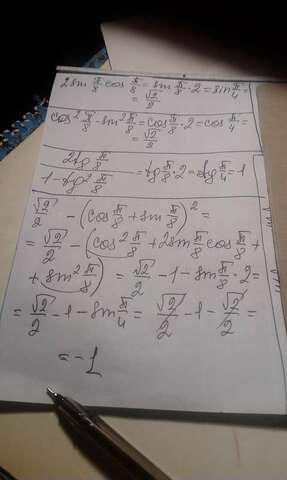 2sin π/8 cos π/8 = sin π/8 · 2 = sin π/4 =
= √2/2
cos² π/8 - sin² π/8 = cos π/8 · 2 = cos π/4 =
= √2/2
2tg π/8 / 1 - tg² π/8 = tg π/8 · 2 = tg π/4 = 1
√2/2 - (cos π/8 + sin π/8)² =
= √2/2 - (cos² π/8 + 2sin π/8 cos π/8 +
+ sin² π/8) = √2/2 - 1 - sin π/8 · 2 =
= √2/2 - 1 - sin π/4 = √2/2 - 1 - √2/2 =
= -1